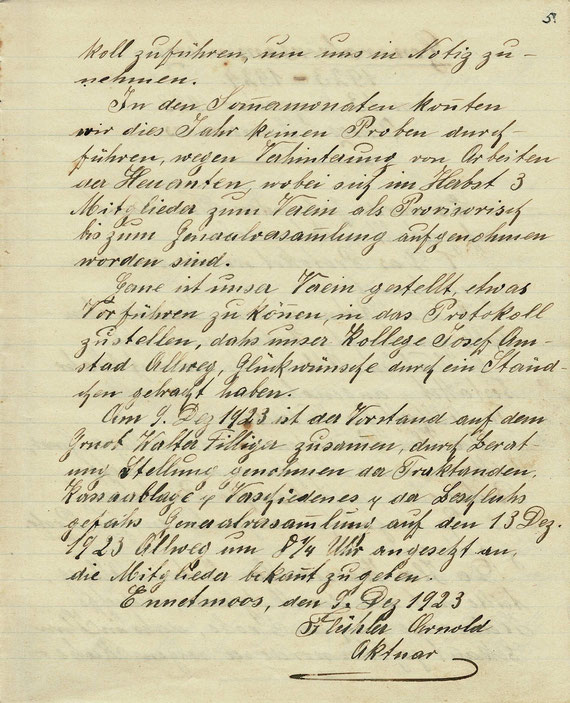 5.
koll zuführen, um uns in Notiz zu-
nehmen.
In den Som̄amonaten kon̄ten
wir dies Jahr keinen Proben durch-
führen, wegen Verhinterung von Arbeiten
der Heuanten, wobei sich im Herbst 3
Mitglieder zum Verein als Provisorisch
bis zum Genaalversam̄lung aufgenohmen
worden sind.
Gane ist unser Verein gestellt, etwas
Vorführen zu kön̄en, in das Protokoll
zustellen, dahs unser Kollege Josef Am-
stad Allweg, Glückwünsche durch ein Ständ-
chen gebracht haben.
Am 9. Dez 1923 ist der Vorstand auf dem
Grnot Walter Filliger zusam̄en, durch Berat-
ung Stellung genohmen da Traktanden,
Kassaablage & Vaschiedenes & da Beschluhs
gefahs Genaalversam̄lung auf den 13 Dez.
1923 Allweg um 8¼ Uhr angesetzt an,
die Mitglieder bekan̄t zugeben.
Ennetmoos, den 9. Dez 1923
Arnold
Aktuar